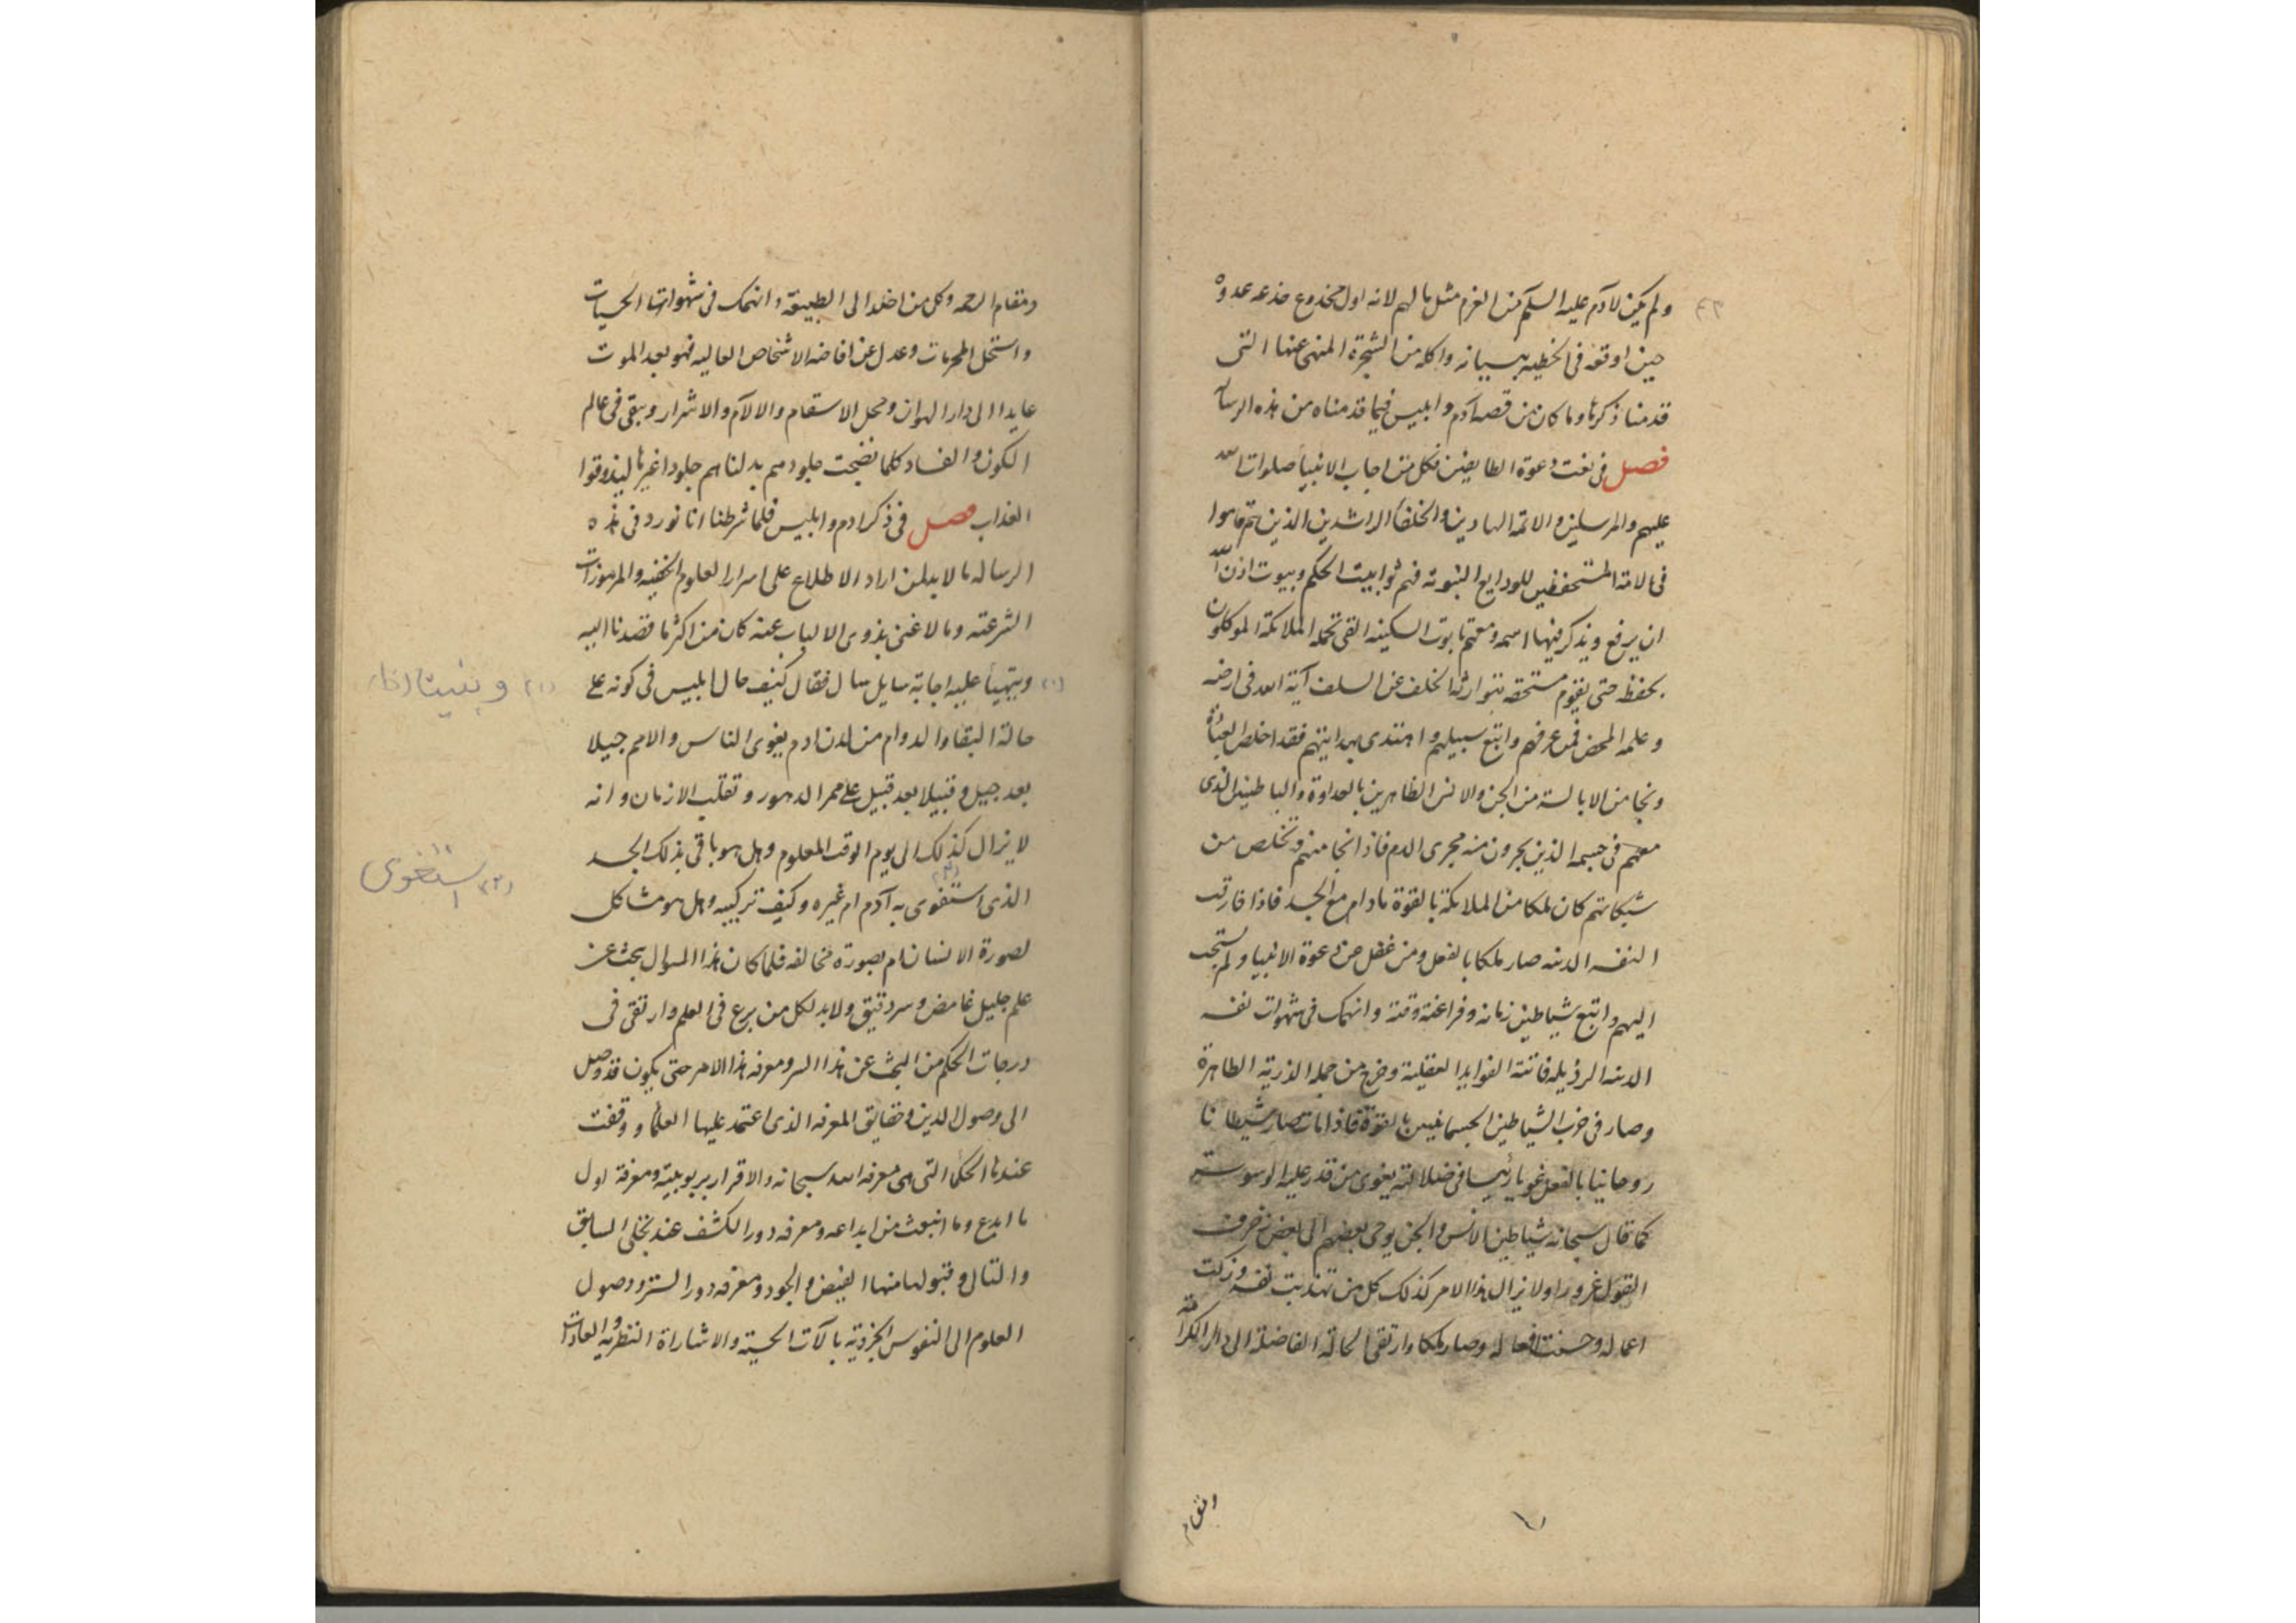 ولم يكن لادم عليه السلم من العزم مثل مالهم لانه اول مخدوع خدعه عدوه
حين اوقعه في الخطيه بنسيانه واكله من الشجرة المنهي عنها التي
قدمنا ذكرها وما كان من قصه ادم وابليس فيما قدمناه من هذه الرسالة
فصل في نعت دعوة الطايعين فكل من اجاب الانبيأ صلوات الله
عليهم والمرسلين والائمه الهادين والخلفا الراشدين الذين هم قاموا
في الامة المستحفظين للودايع النبوية فهم ابواب بيت الحكم وبيوت اذن الله
ان يرفع ويذكر فيها اسمه ومعهم تابوت السكينه التي تحمله الملائكة الموكلون
بحفظه حتى يقوم مستحقه يتوارثه الخلف عن السلف آية الله في ارضه
وعلمه المحض فمن عرفهم واتبع سبيلهم واهتدى بهدايتهم فقد اخلص العبادة
ونجا من الابالسة من الجن والانس الظاهرين بالعداوة والباطنين الذى
معهم في جسمه الذين يجرون منه مجرى الدم فاذا نجا منهم وتخلص من
شبكاتهم كان ملكا من الملايكة بالقوة مادام مع الجسد فاذا فارقت
النفس الدنيه صار ملكا بالفعل ومن غفل عن دعوة الانبيا ولم يستجب
اليهم واتبع شياطين زمانه وفراعنة وقته وانهمك في شهوات نفسه
الدنيه الرذيله فاتته الفوايد العقلية وخرج من جمله الذرية الطاهرة
وصار في حزب الشياطين الجسمانيين بالقوة فاذا مات صار شيطانا
روحانيا بالفعل غويا رئيسا في ضلالته يغوى من قدر عليه الوسوسة
كما قال سبحانه شياطين الانس والجن يوحى بعضهم الى بعض زخرف
القول غرورا ولا يزال هذا الامر كذلك كل من تهذبت نفسه وزكت
اعماله وحسنت افعاله وصار ملكا وارتقى لحالة الفاضلة الى دار الكرامة
ومقام
ومقام الرحمه وكل من اخلد الى الطبيعة وانهمك في شهواتها الحسيات
واستحل المحرمات وعدل عن افاضه الاشخاص العاليه فهو بعد الموت
عايدا الى دار الهوان ومحل الاسقام والالآم والاشرار ويبقى في عالم
الكون والفساد كلما نضجت جلودهم بدلناهم جلودا غيرها ليذوقوا
العذاب فصل في ذكر ادم وابليس فلما شرطنا انا نورد في هذه
الرساله ما لابد لمن اراد الاطلاع على اسرار العلوم الخفيه والمرموزات
الشرعته وما لا غنى بذوى الالباب عنه كان من اكثر ما قصدنا اليه
(١) ويتهيأ عليه اجابة سايل سال فقال كيف حال ابليس في كونه على
حالة البقا والدوام من لدن ادم يغوى الناس والامم جيلا
بعد جيل وقبيلا بعد قبيل على ممر الدهور وتقلب الازمان وانه
لا يزال كذلك الى يوم الوقت المعلوم وهل هو باقي بذلك الجسد
الذى استغوى به آدم ام غيره وكيف تركيبه وهل هو مشاكل
لصورة الانسان ام بصورة مخالفه فلما كان هذا السوال بحث عن
علم جليل غامض وسر دقيق ولابد لكل من برع في العلم وارتقى في
درجات الحكم من البحث عن هذا السر ومعرفه هذا الامر حتى يكون قد وصل
الى وصول الدين وحقايق المعرفه الذى اعتمد عليها العلمأ ووقفت
عندها الحكمأ التي هي معرفه الله سبحانه والاقرار بربوبيته ومعرفة اول
ما ابدع وما انبعث من ابداعه ومعرفه دور الكشف عند تجلى السابق
والتالي وقبولها منها الفيض والجود ومعرفه دور الستر ووصول
العلوم الى النفوس الجزوية بالآت الحسية والاشاراة النظرية والعادات
(٢) استغوى